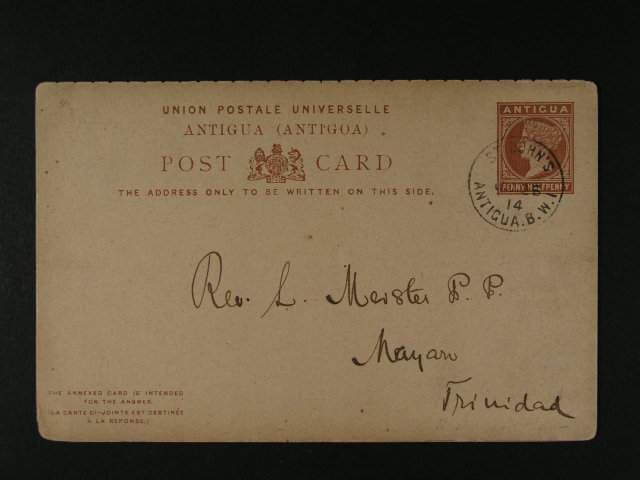 UNION POSTALE UNIVERSELLE
ANTIGUA (ANTIGOA)
POST CARD
THE ADDRESS ONLY TO BE WRITTEN ON THIS SIDE.
ANTIGUA
PENNY HALFPENNY
ST JOHN'S
14
ANTIGUA.B.W.I
Rev. L. Meister P. P.
Mayaro
Trinidad
THE ANNEXED CARD IS INTENDED
FOR THE ANSWER.
(LA CARTE CI-JOINTE EST DESTINÉE
À LA RÉPONSE.)